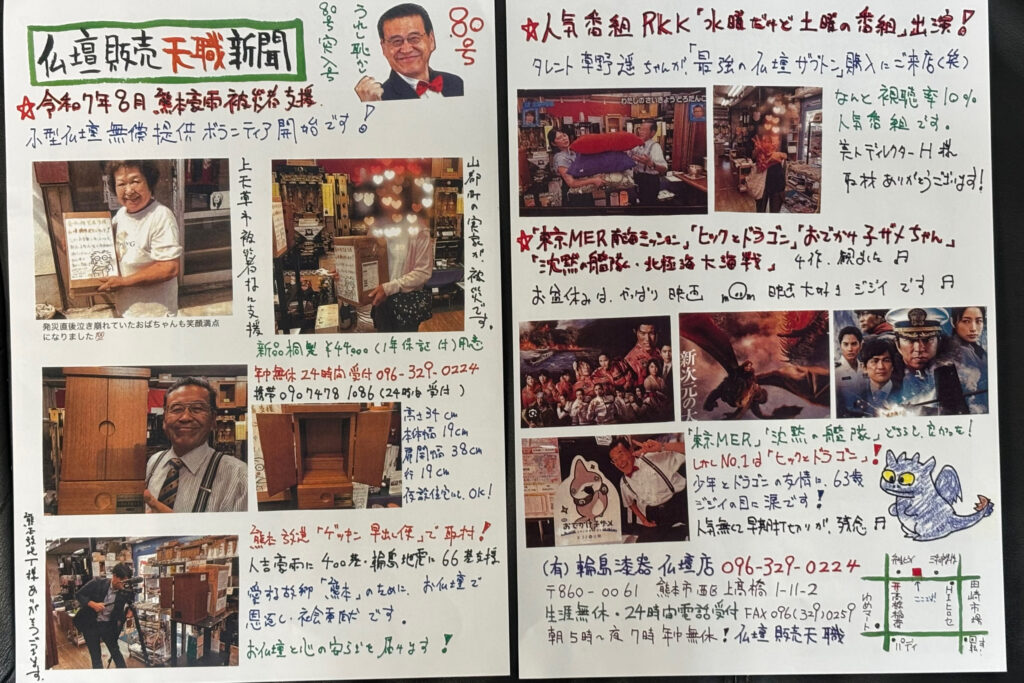 仏壇販売天職新聞
80号
うれし恥かし
80号突入号
☆令和7年8月 熊本豪雨被災者支援
小型仏壇無償提供ボランティア開始です!
上天草市被災者様に支援
山都町の実家が被災です。
発災直後泣き崩れていたおばちゃんも笑顔満点
になりました💯
新品桐製 ¥44,900(1年保証付)用意
年中無休24時間受付096-329-0224
携帯090 7478 1086(24時間受付)
高さ34cm
本体幅19cm
扉開幅38cm
奥行19cm
仮設住宅にも、OK!
熊本放送「ゲツキン早出し便」で取材!
人吉豪雨に400基・輪島地震に66基支援
愛する故郷「熊本」のために、お仏壇で
恩返し・社会貢献です。
お仏壇と心の安らぎを届けます!
様ありがとうございます。
☆人気番組RKK「水曜だけど土曜の番組」出演!
タレント草野遥ちゃんが、「最強の仏壇ザブトン」購入にご来店(笑)
わたしのさいきょうどろだんご
なんと視聴率10%
人気番組です。
美人ディレクターH様
取材ありがとうございます!
☆「東京MER 南海ミッション」「ヒックとドラゴン」「おでかけ子ザメちゃん」
「沈黙の艦隊・北極海大海戦」4作、観ました♬
お盆休みは、やっぱり映画 映画大好きジジイです♬
新次元の大
おでかけ子ザメ
「東京MER」「沈黙の艦隊」どちらも良かった!
しかしNo.1は「ヒックとドラゴン」!
少年とドラゴンの友情に、63歳
ジジイの目に涙です!
人気無くて早期打ち切りが、残念♬
(有)輪島漆器仏壇店 096-329-0224
〒860-0061 熊本市西区上高橋1-11-2
生涯無休・24時間電話受付 FAX096(329)0259
朝5時~夜7時年中無休!仏壇販売天職
ゆめマート
ここ
ヒロセ
田崎市場
パディ